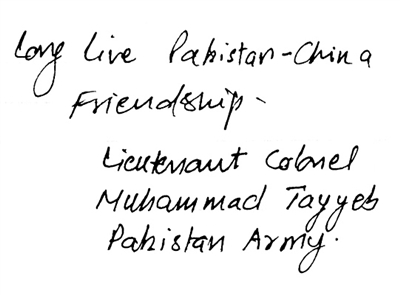 Long Live Pakistan-China
Friendship-
Lieutenant Colonel
Muhammad Tayyeb
Pakistan Army.